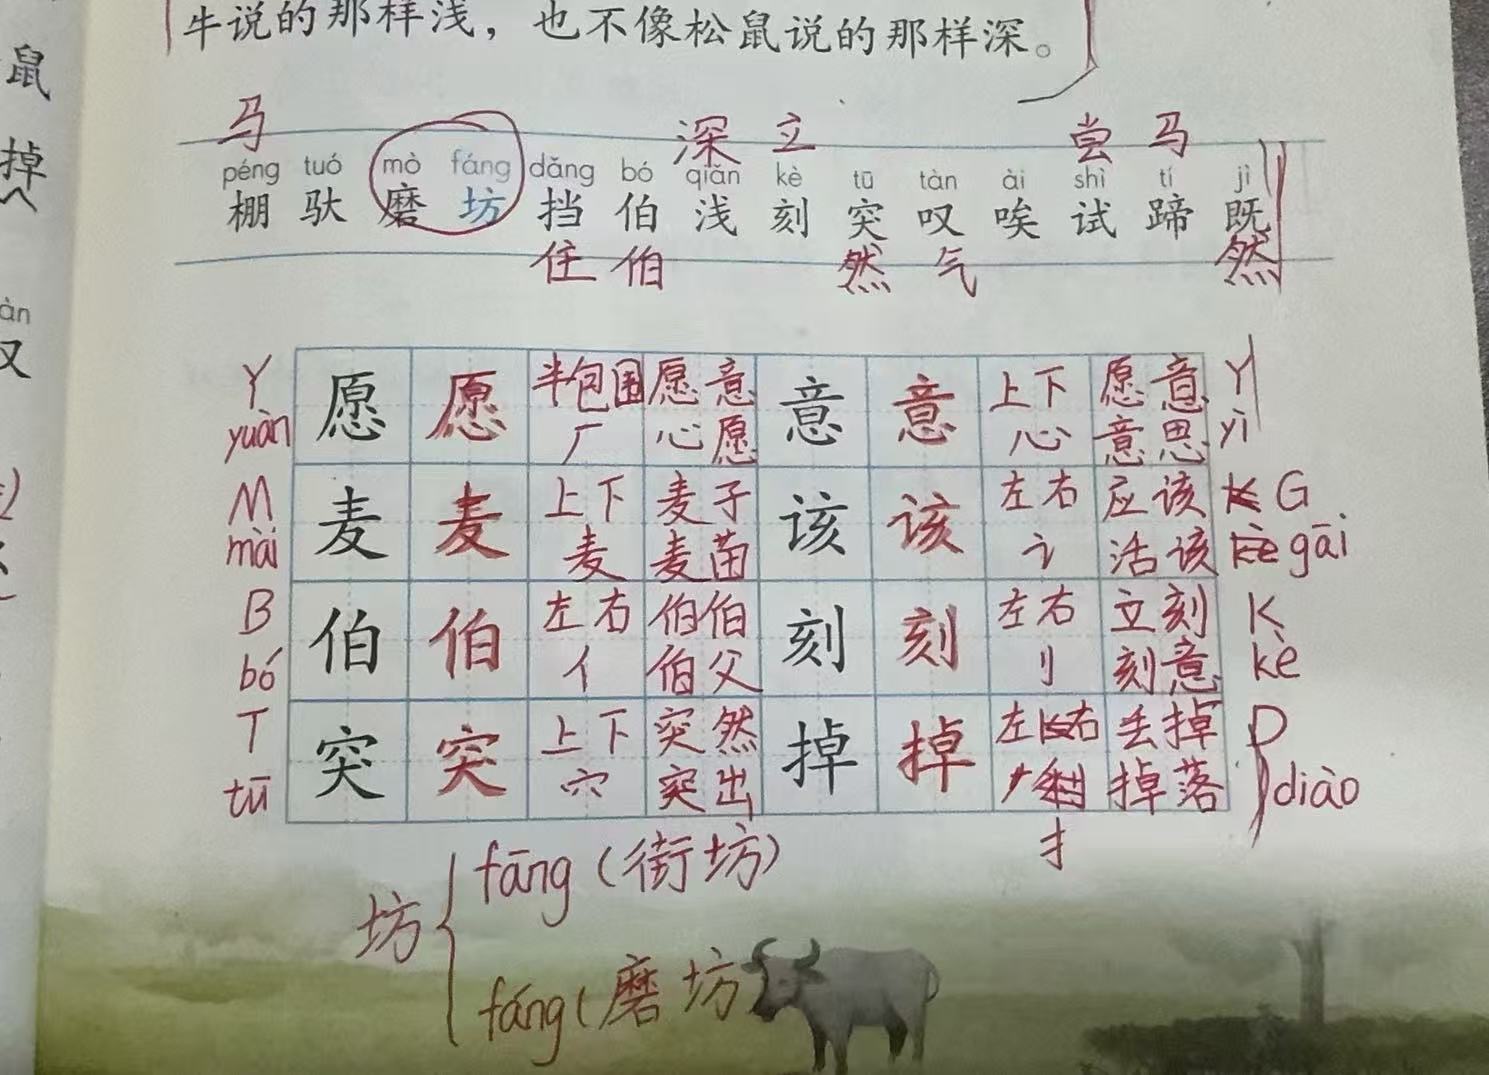 牛说的那样浅，也不像松鼠说的那样深。
鼠
掉
àn
又
马 深 立 尝 马
péng tuó mò fáng dǎng bó qiǎn kè tū tàn ài shì tí jì
棚 驮 磨 坊 挡 伯 浅 刻 突 叹 唉 试 蹄 既
住 伯 然 气 然
Y 愿 愿 半包围 愿意 意 意 上下 愿意 Y
yuàn 厂 心愿 心 意思 yì
M 麦 麦 上下 麦子 该 该 左右 应该 K G
mài 麦 麦苗 讠 活该 kè gāi
B 伯 伯 左右 伯伯 刻 刻 左右 立刻 K
bó 亻 伯父 刂 刻意 kè
T 突 突 上下 突然 掉 掉 左右 丢掉 D
tū 穴 突出 掉落 diào
扌
fāng（街坊）
坊
fáng（磨坊